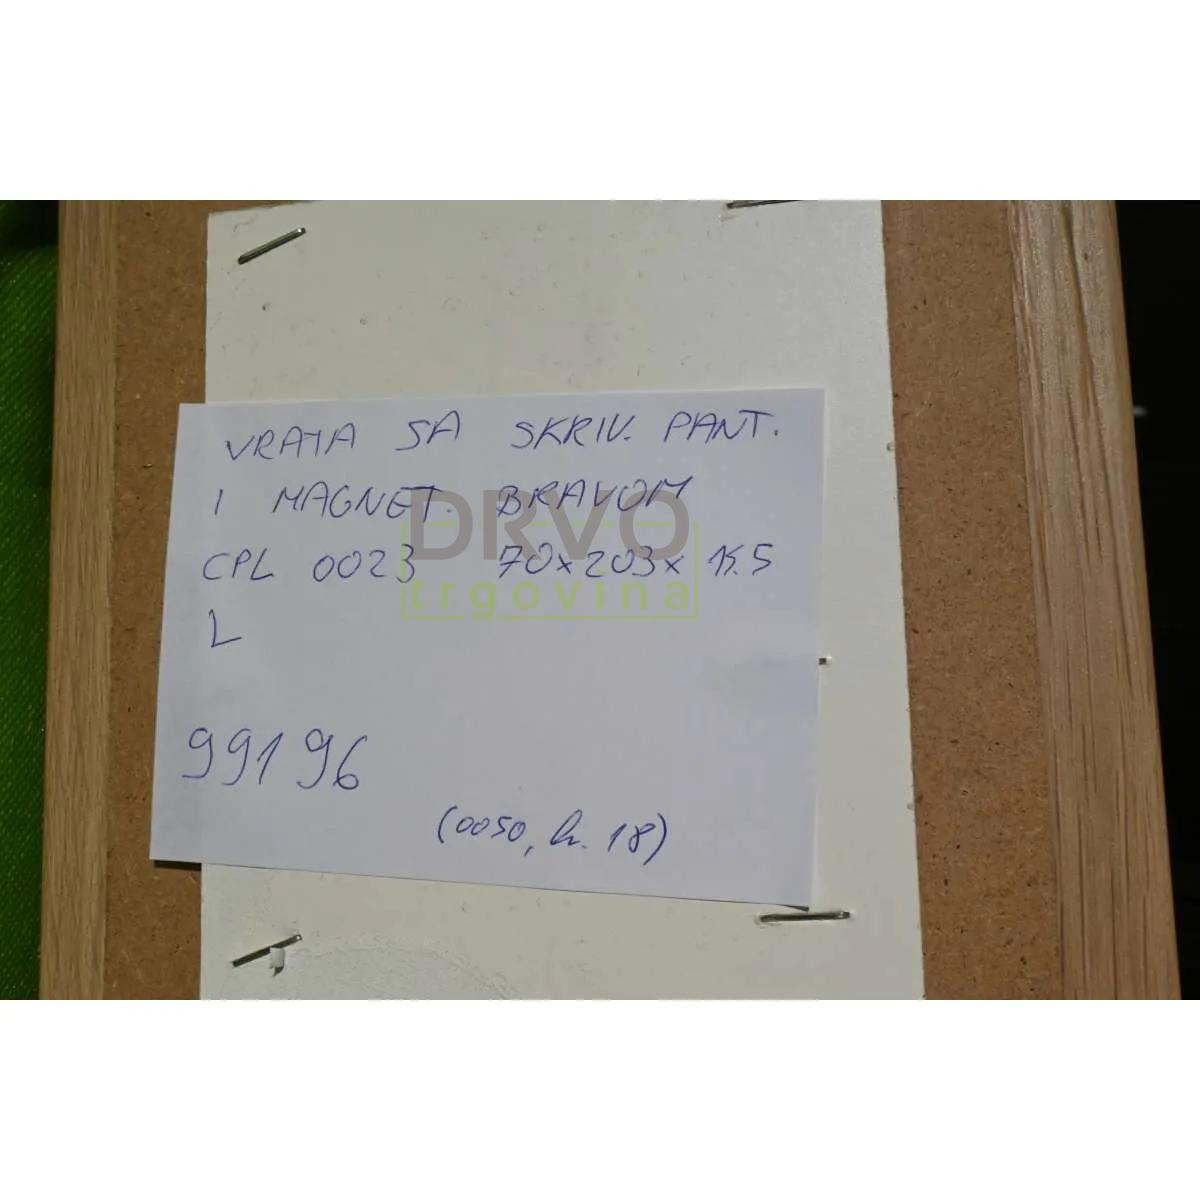 VRATA SA SKRIV. PANT.
I MAGNET. BRAVOM
DRVO
CPL 0023 70x203x 15.5
trgovina
L
99196
(0050, h. 18)